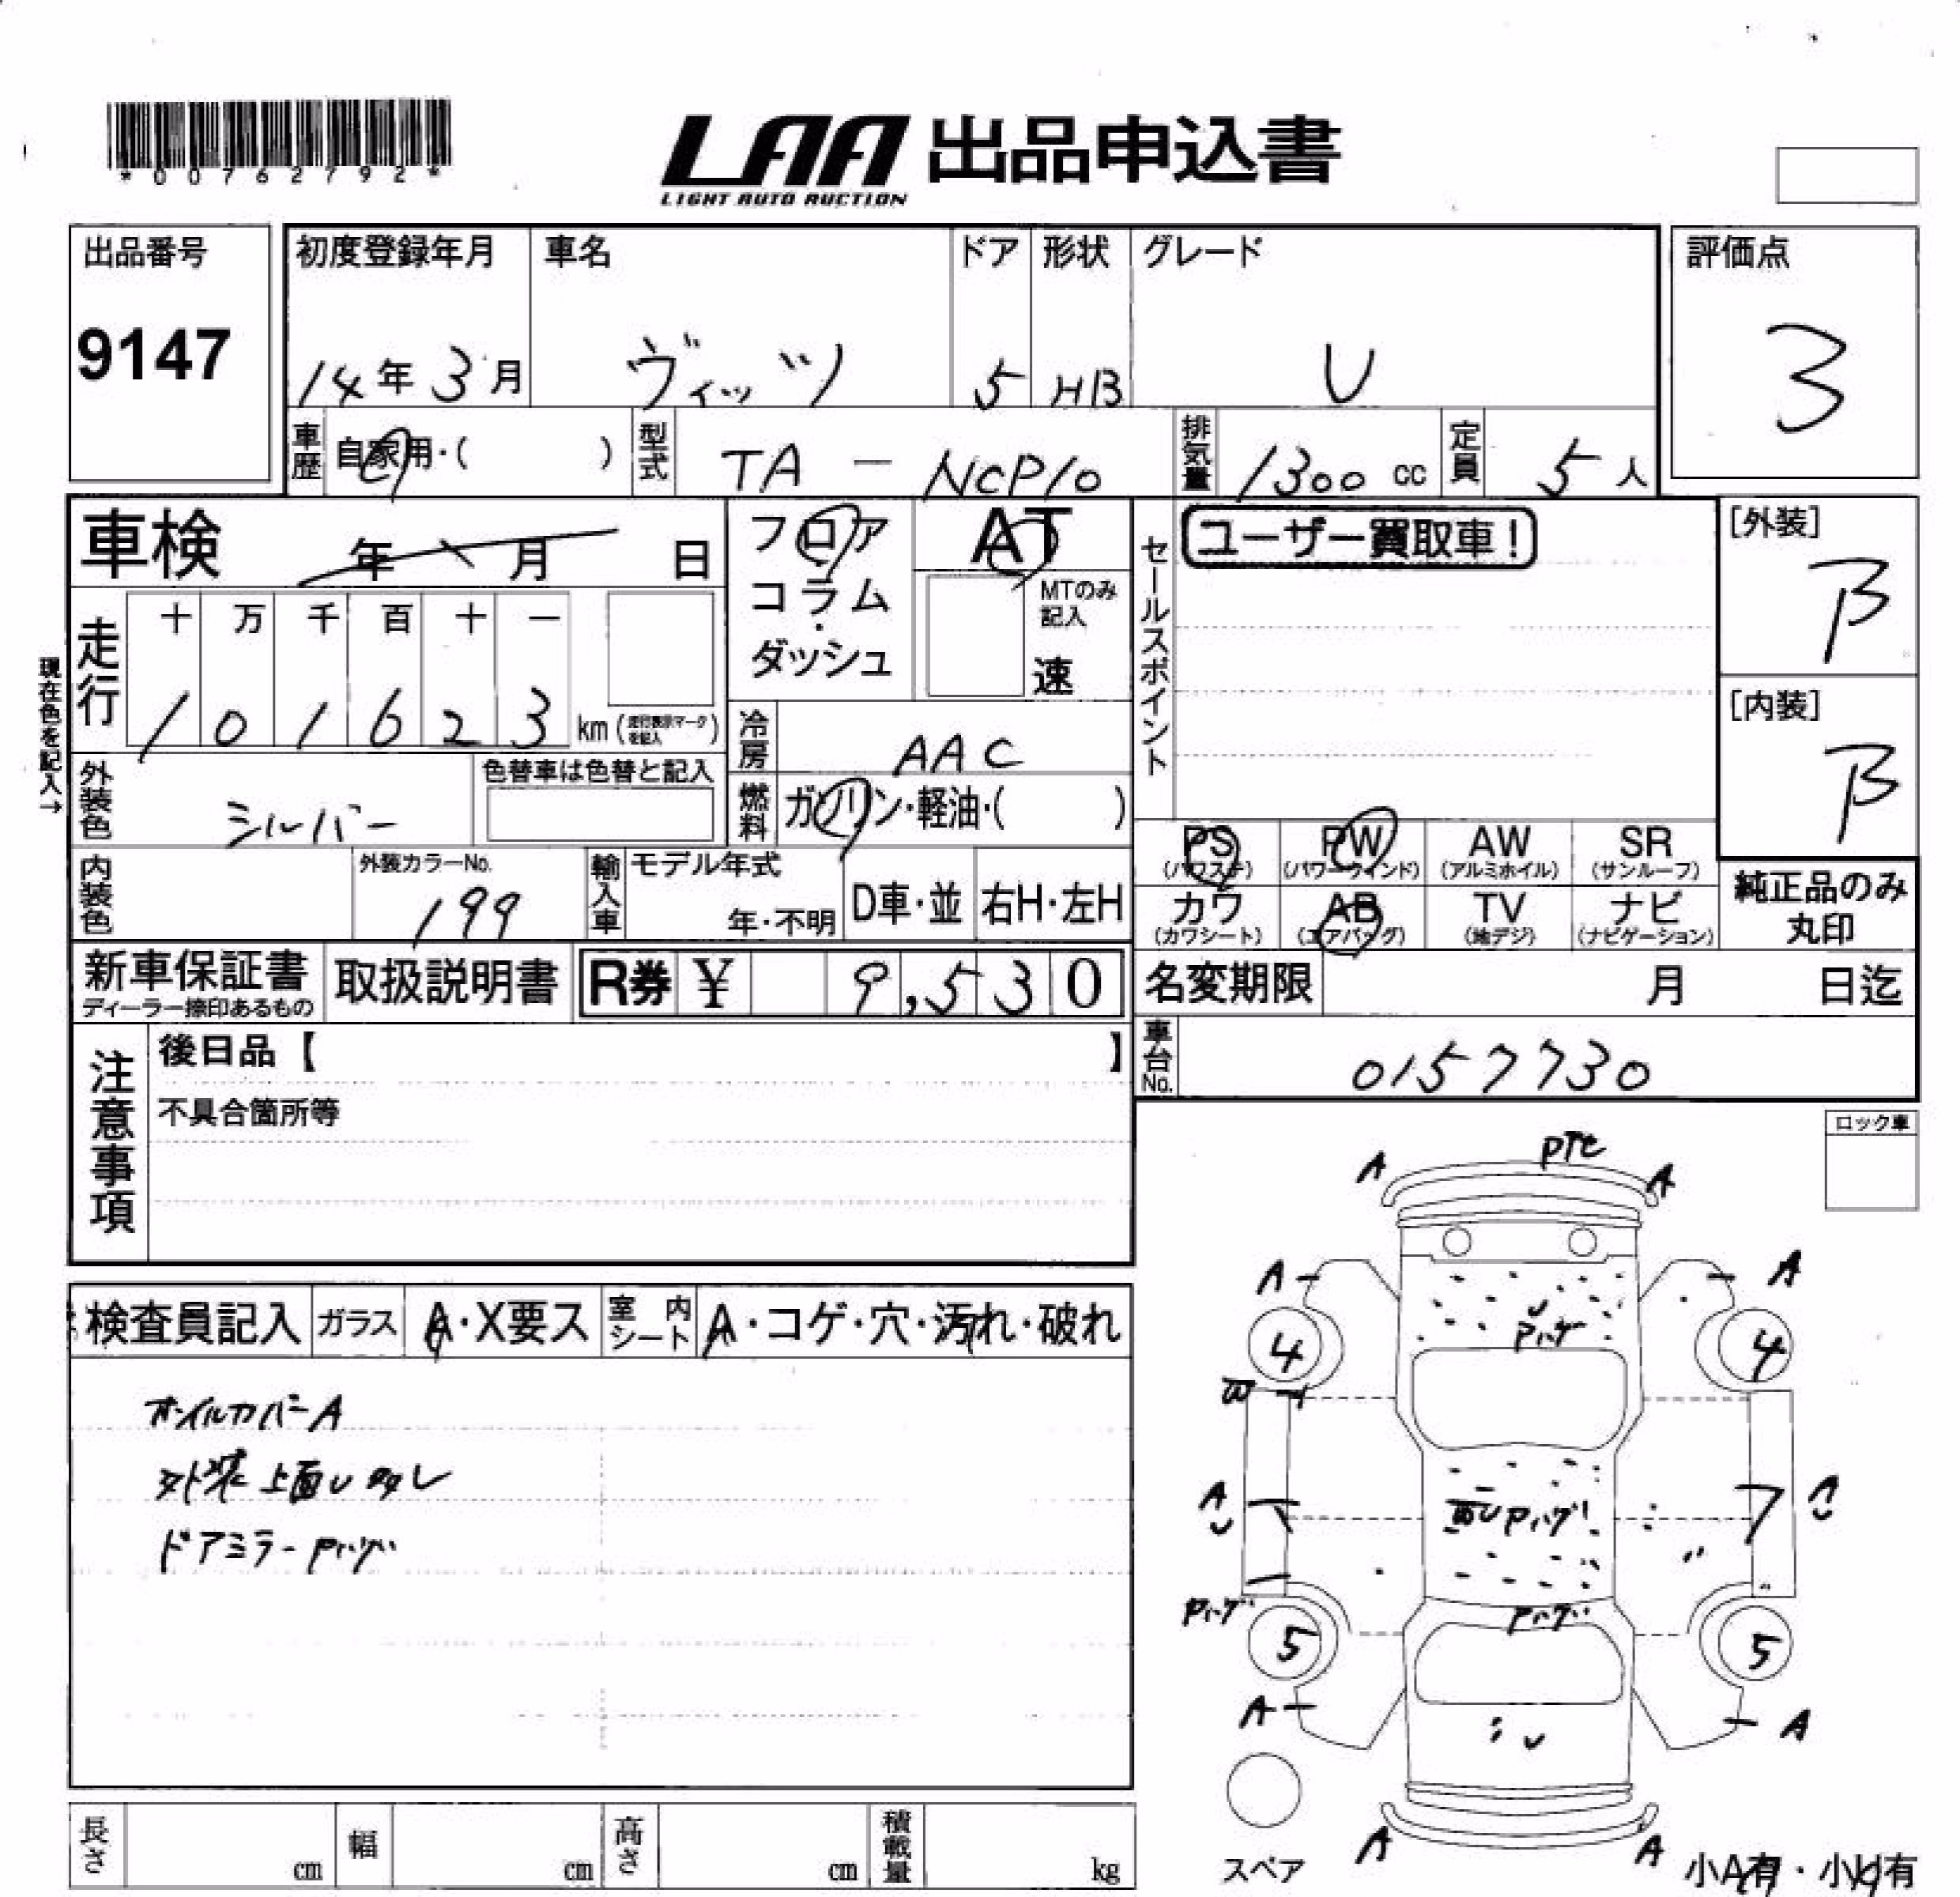 *00762792*
LAA 出品申込書
LIGHT AUTO AUCTION
出品番号
9147
初度登録年月 車名 ドア 形状 グレード
14年3月 ヴィッツ 5 HB U
評価点
3
車歴 自家用・( ) 型式 TA - NCP10 排気量 1300 cc 定員 5人
車検 年 月 日
フロア
コラム
・
ダッシュ
AT
MTのみ
記入
速
セールスポイント
ユーザー買取車!
[外装]
B
[内装]
B
現在色を記入→
走行
十 万 千 百 十 一
1 0 1 6 2 3 km (走行表示マークを記入)
冷房 AAC
燃料 ガソリン・軽油・( )
外装色 シルバー
色替車は色替と記入
内装色
外装カラーNo.
199
輸入車
モデル年式
年・不明
D車・並 右H・左H
PS PW AW SR
(パワステ) (パワーウインド) (アルミホイル) (サンルーフ)
カワ AB TV ナビ
(カワシート) (エアバッグ) (地デジ) (ナビゲーション)
純正品のみ
丸印
新車保証書
ディーラー捺印あるもの
取扱説明書
R券 ¥ 9,530
名変期限 月 日迄
車台No. 0157730
注意事項
後日品【 】
不具合箇所等
ロック車
検査員記入 ガラス A・X要ス 室内シート A・コゲ・穴・汚れ・破れ
オイルカバーA
外装上面U多し
ドアミラーPハゲ
A A
A A
U
Pハゲ
4 4
W
A
U
Pハゲ
Pハゲ
Pハゲ
5 5
A A
U
A A
スペア
小A有・小U有
長さ cm 幅 cm 高さ cm 積載量 kg